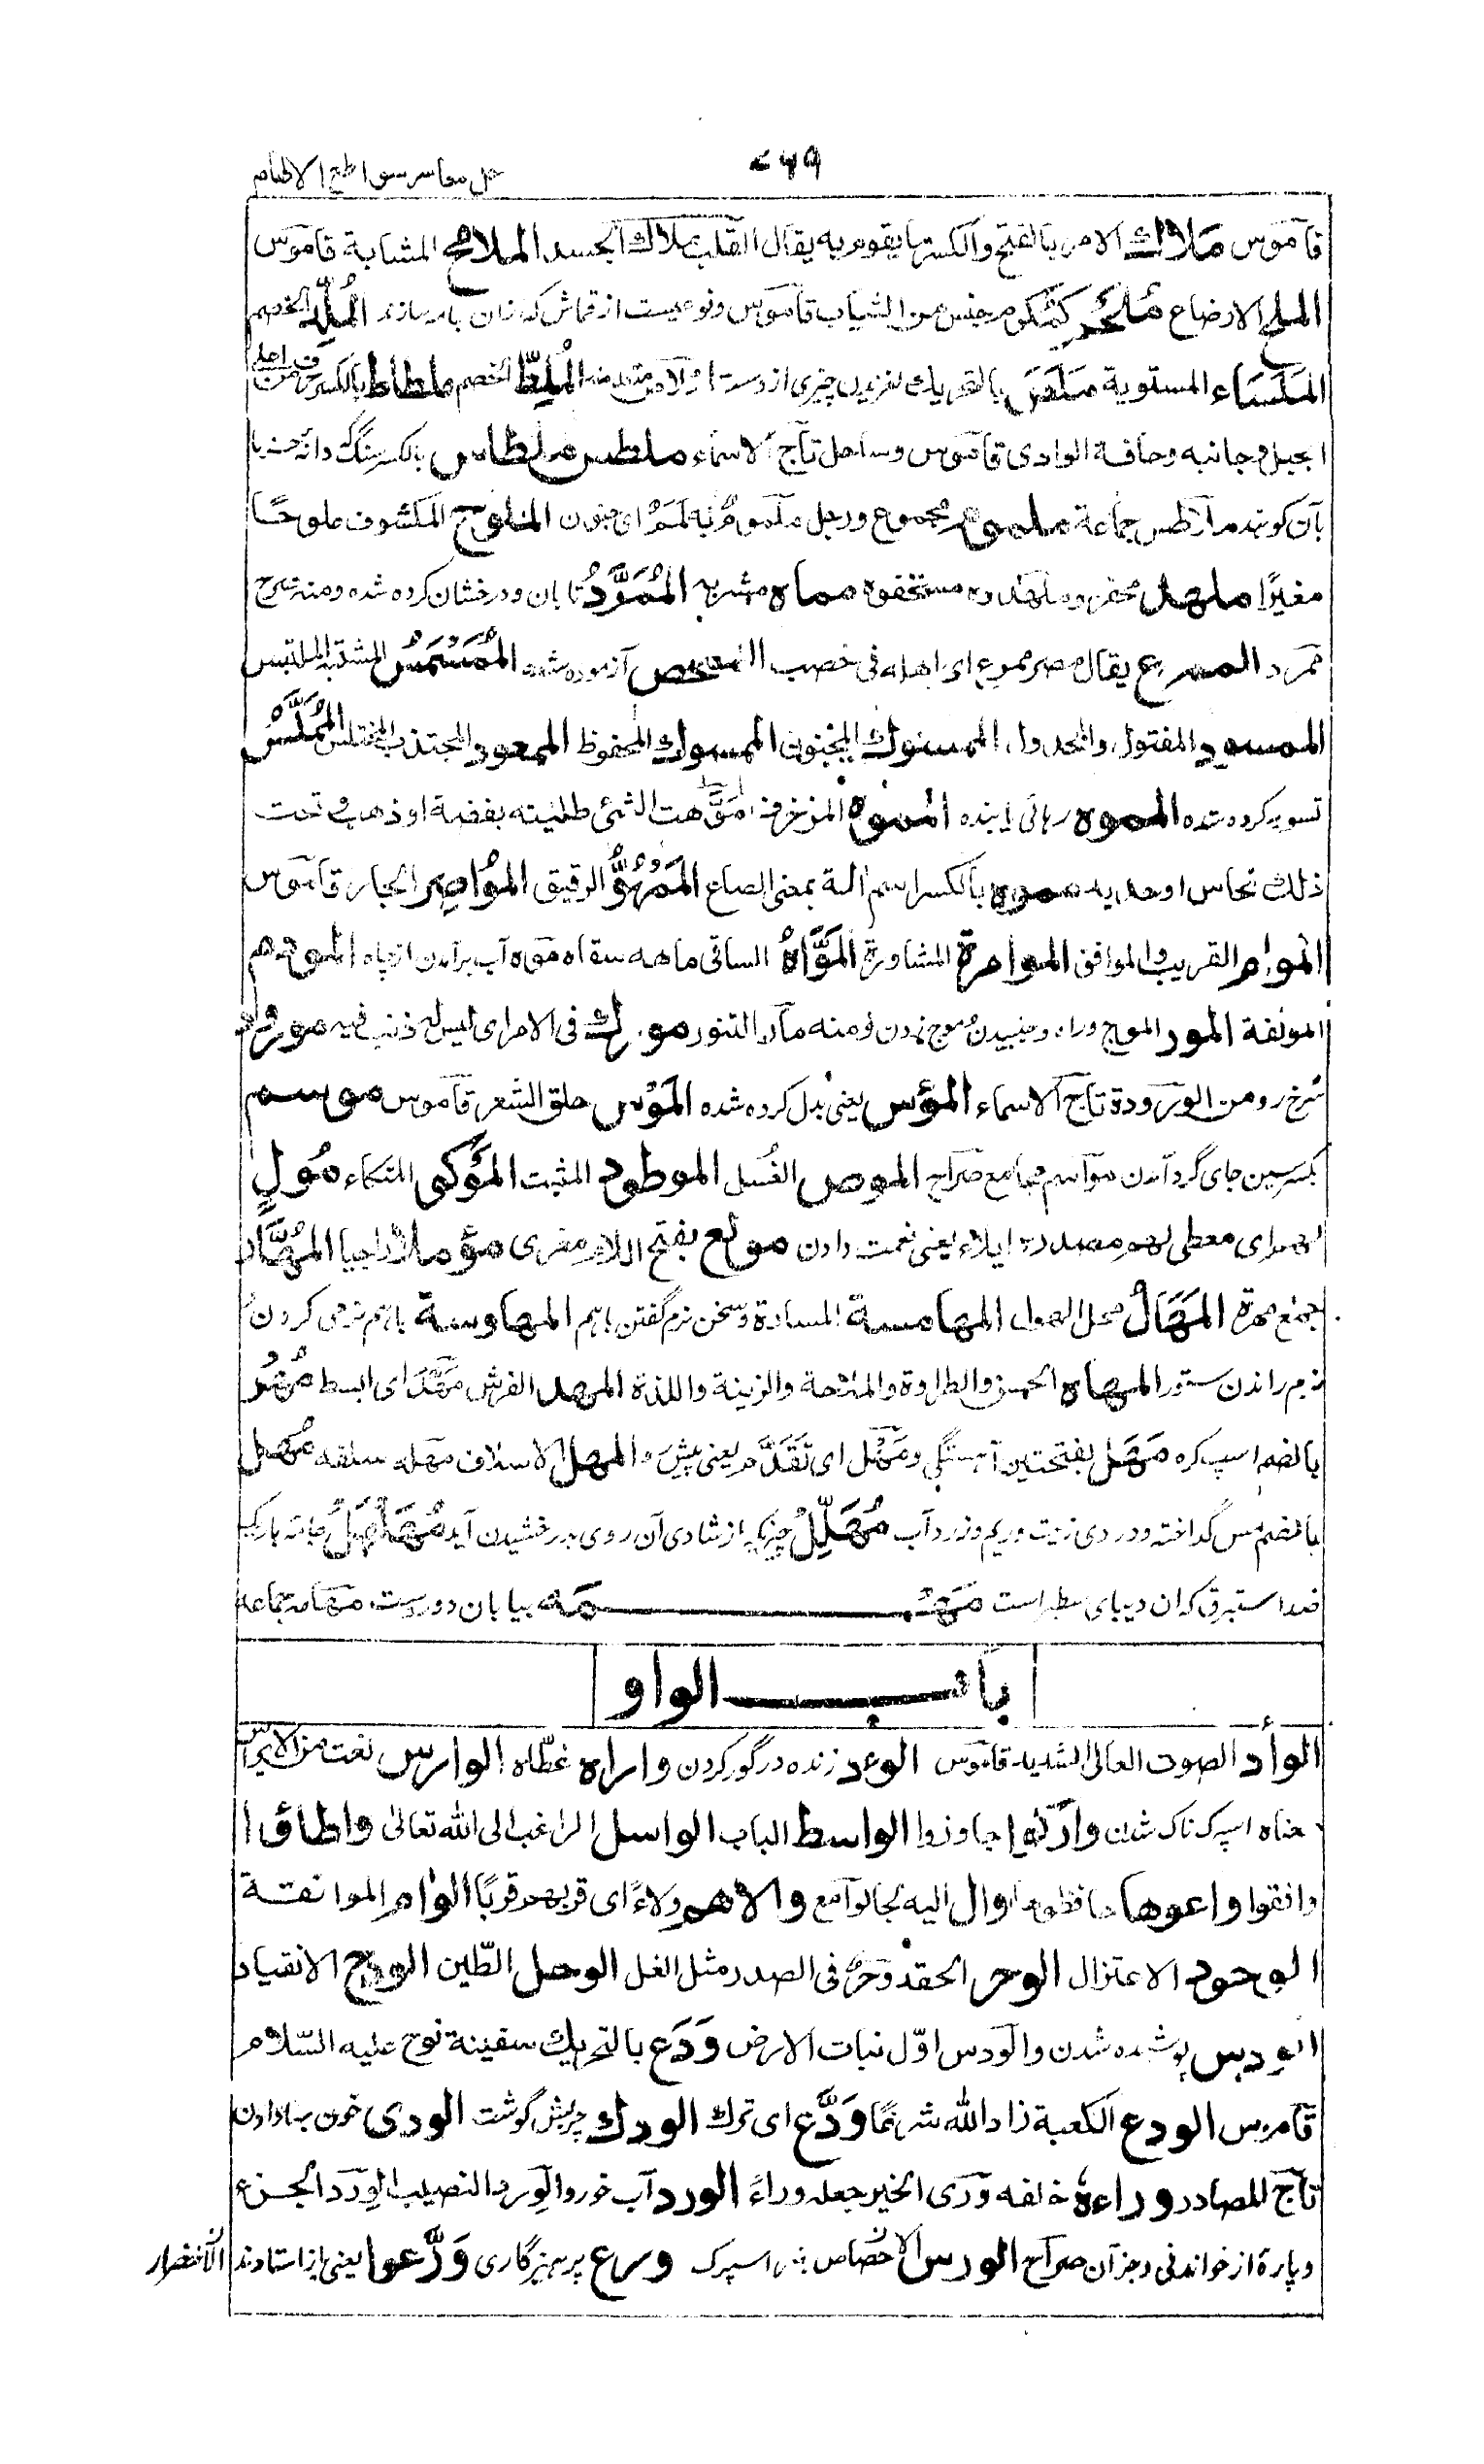 ۷۶۹
حل معاسر سواطع الالهام
قاموس ملاك الامر بالفتح والكسر ما يقوم به يقال القلب ملاك الجسد الملامح المشابهة قاموس
الملح الارضاع ملحم كمكرم جنس من الثياب قاموس ونوعيست از قماش كه زنان جامه سازند الملد الخصم
الملساء المستوية ملص بالتحريك لغزيدن چيزى از دست الملط الخصم ملطاط بالكسر حرف من اعلى
الجبل وجانبه وحافة الوادى قاموس وساحل تاج الاسماء ملطس ملطاس بالكسر سنگ دانه خسته با
بآن كوبند ملاطس جماعة ملموم مجموع ورجل ملموم به لمم اى جنون الملوح المكشوف ملوحًا
مغيرًا ملهد محقر مستخفوه مماه مشربه الممرد تابان ودرخشان كرده شده ومنه صرح
ممرد الممرع يقال مصر ممرع اى اهله فى خصب الممحص آزموده شده الممسمس المشتبه الملتبس
الممسود المفتول والمجدول الممسوك المجنون الممسوك المحفوظ الممعود المجتذب المختلس المملس
تسويه كرده شده المموه رهائى يابنده المموه المزخرف موهت الشئ طليته بفضة او ذهب وتحت
ذلك نحاس او حديد مموه بالكسر اسم الة بمعنى الصاع الممهو الرقيق المواصر الجار قاموس
الموام القريب والموافق الموامرة المشاورة المواه الساقى ماهه سقاه موه آب برآمدن از چاه
الموتفة المور الموج وراه وجنبيدن وموج زدن ومنه مار التنور مورك فى الامر اى ليس له ذنب فيه مورد
سرخ رو من الورودة تاج الاسماء المؤس يعنى بدل كرده شده الموس حلق الشعر قاموس موسم
بكسر سين جاى گرد آمدن مواسم مجامع صراح الموص الغسل الموطود المثبت المؤكى المتكاء مول
لهم اى معطى لهم مصدره ايلاء يعنى نعمت دادن مولع بفتح اللام مغرى مؤملا راجيا المهار
جمع مهرة المهال محل الهول المهامسة المسارة وسخن نرم گفتن باهم المهاوسة باهم نرمى كردن
نرم راندن ستور المهاه الحسن والطراوة والملاحة والزينة واللذة المهد الفرش مهد اى ابسط مهر
بالضم اسپ كره مهل بفتحتين آهستگى ومهل اى تقدم يعنى پيش والمهل الاسلاف مهله سلفه مهل
بالضم مس گداخته ودردى زيت وريم وزرد آب مهلل چيزيكه از شادى آن روى بدرخشيدن آيد مهلهل جامه باريك
ضد استبرق كه ان ديباى سطبر است مهمه بيابان دور دست مهامه جماعه
باب الواو
الوأد الصوت العالى الشديد قاموس الوءد زنده در گور كردن واراه غطاه الوارس نعت من الايراس
معناه اسپرک ناک شدن جاوزوا الواسط الباب الواسل الراغب الى الله تعالى واطاؤا
وافقوا واعوها حافظوها وال اليه لجا لوآمع والاهم ولاءً اى قربهم قربًا الوام الموافقة
الوحود الاعتزال الوحر الحقد وحر فى الصدر مثل الغل الوحل الطّين الودح الانقياد
الودس پوشيده شدن والودس اوّل نبات الارض وَدَع بالتحريك سفينة نوح عليه السّلام
قاموس الودع الكعبة زاد الله شرفًا وَدَّع اى ترك الودك چربش گوشت الودى خون بها دادن
تاج المصادر وراءه خلفه ورى الخير جعله وراءً الورد آب خور والورد النصيب الورد الجزء
وپارهٔ از خواندنى وجز آن صراح الورس اسپرک ورع پرهيزگارى وَرَّعوا يعنى باز استادند
الاخضرار